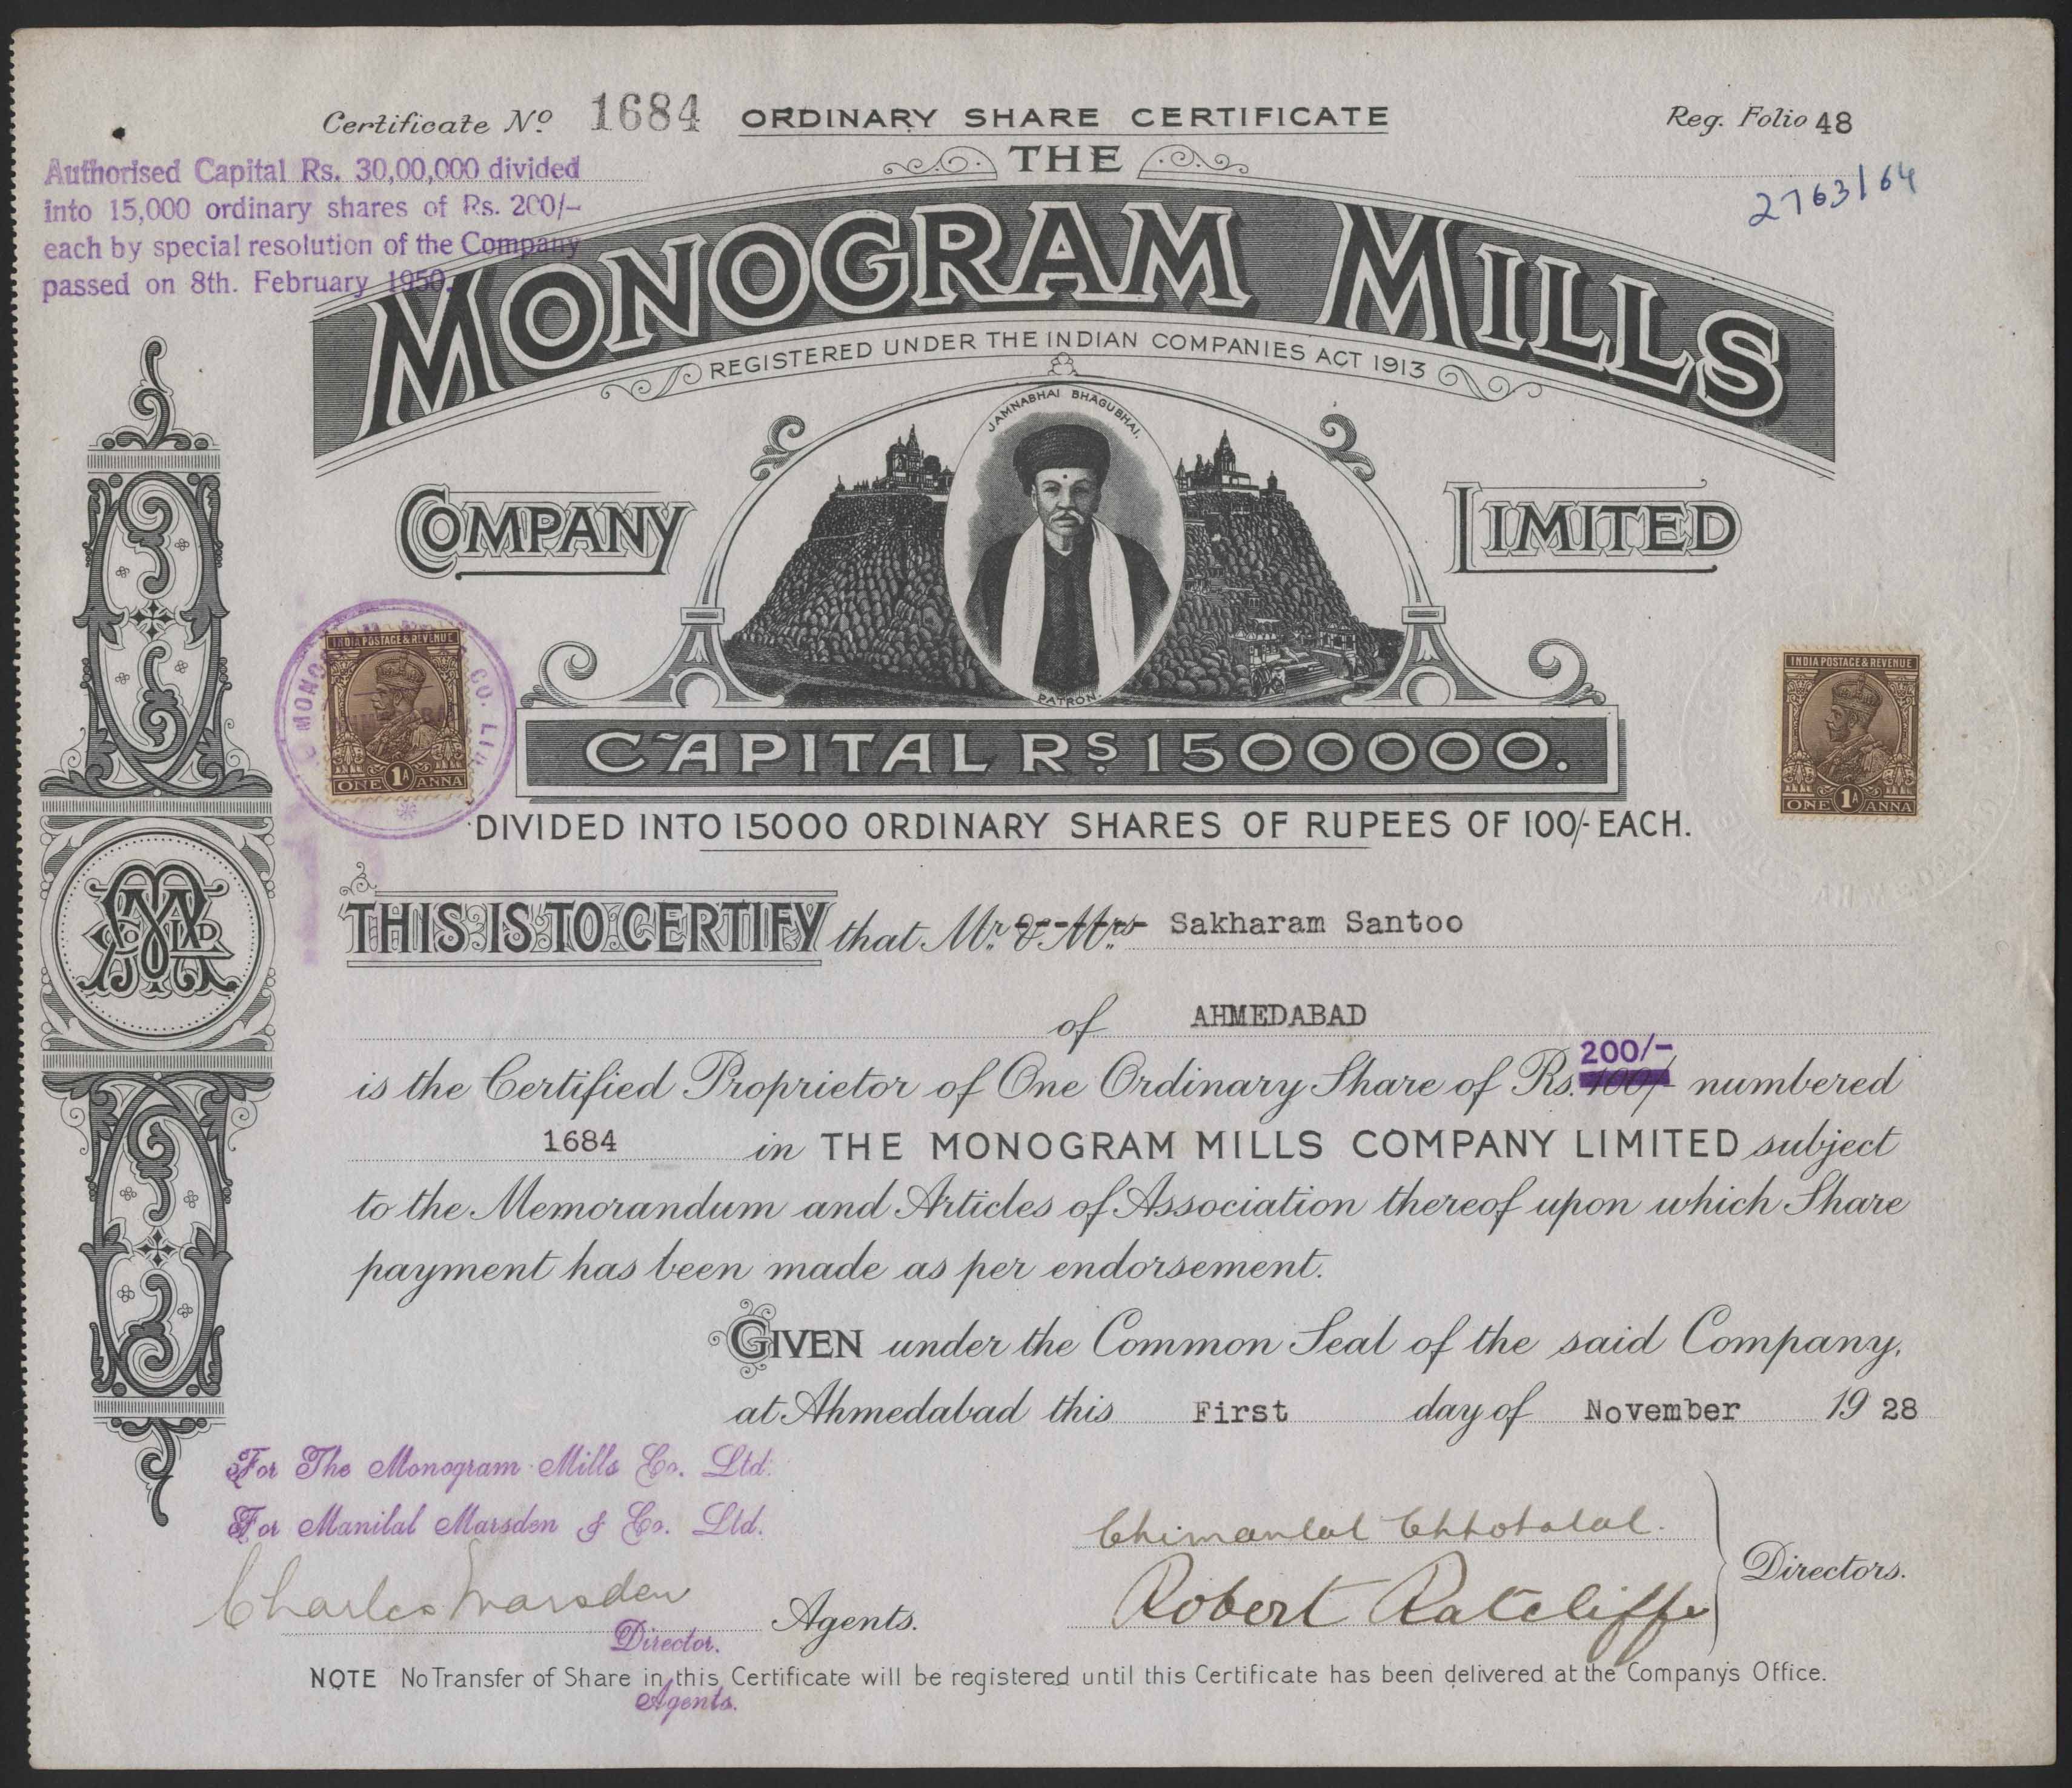 Certificate No. 1684 ORDINARY SHARE CERTIFICATE Reg. Folio 48
2763/64
Authorised Capital Rs. 30,00,000 divided
into 15,000 ordinary shares of Rs. 200/-
each by special resolution of the Company
passed on 8th. February 1950.
THE
MONOGRAM MILLS
REGISTERED UNDER THE INDIAN COMPANIES ACT 1913
JAMNABHAI BHAGUBHAI.
COMPANY LIMITED
PATRON.
INDIA POSTAGE & REVENUE
ONE 1A ANNA
INDIA POSTAGE & REVENUE
ONE 1A ANNA
CAPITAL RS 1500000.
DIVIDED INTO 15000 ORDINARY SHARES OF RUPEES OF 100/- EACH.
THIS IS TO CERTIFY that Mr. & Mrs. Sakharam Santoo
of AHMEDABAD
200/-
is the Certified Proprietor of One Ordinary Share of Rs. 100/- numbered
1684 in THE MONOGRAM MILLS COMPANY LIMITED subject
to the Memorandum and Articles of Association thereof upon which Share
payment has been made as per endorsement.
GIVEN under the Common Seal of the said Company,
at Ahmedabad this First day of November 1928
For The Monogram Mills Co. Ltd.
For Manilal Marsden & Co. Ltd.
Chimanlal Chhotalal.
Charles Marsden Agents.
Robert Ratcliffe
Directors.
Director.
NOTE No Transfer of Share in this Certificate will be registered until this Certificate has been delivered at the Company's Office.
Agents.